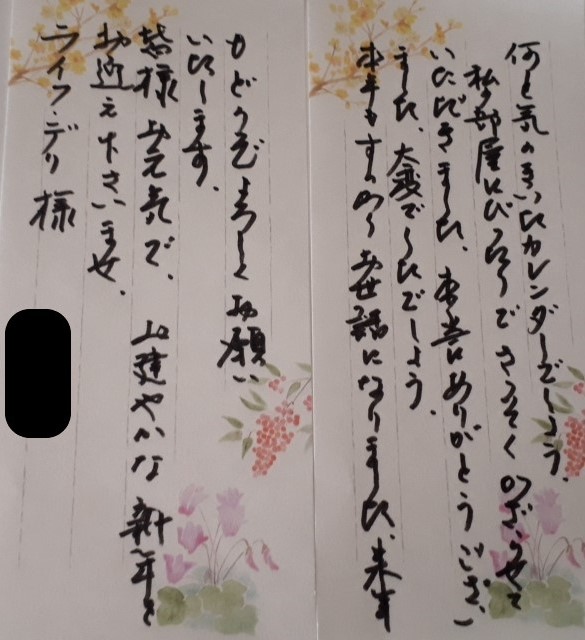 何と気のきいたカレンダーでしょう。
私の部屋にぴったりで さっそく かざらせて
いただきました。本当にありがとうござい
ました。大変でしたでしょう。
本年も すっかり お世話になりました。来年
もどうぞよろしくお願い
いたします。
皆様 お元気で、 お健やかな 新年を
お迎え下さいませ。
ライフ・デリ 様